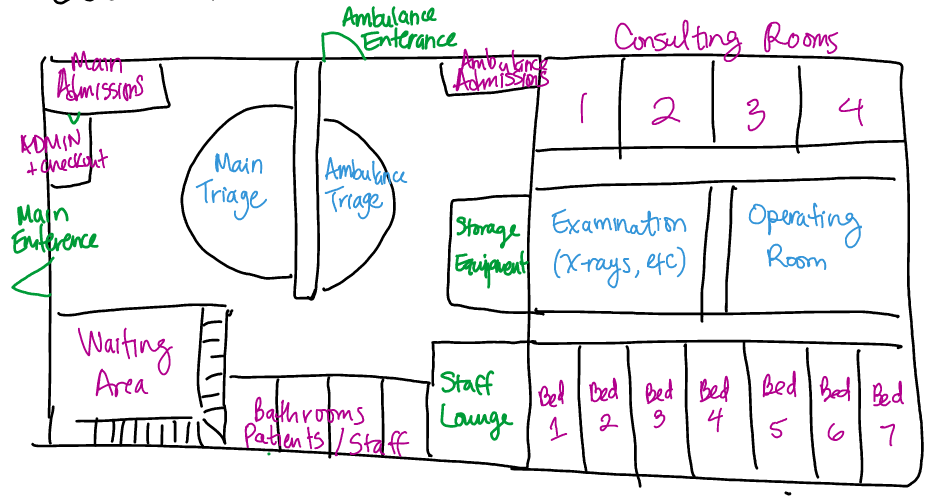 Ambulance
Enterance
Consulting Rooms
Main
Admissions
Ambulance
Admissions
1 2 3 4
ADMIN
+ checkout
Main
Triage
Ambulance
Triage
Main
Enterence
Storage
Equipment
Examination
(X-rays, etc)
Operating
Room
Waiting
Area
Bathrooms
Patients / Staff
Staff
Lounge
Bed 1
Bed 2
Bed 3
Bed 4
Bed 5
Bed 6
Bed 7